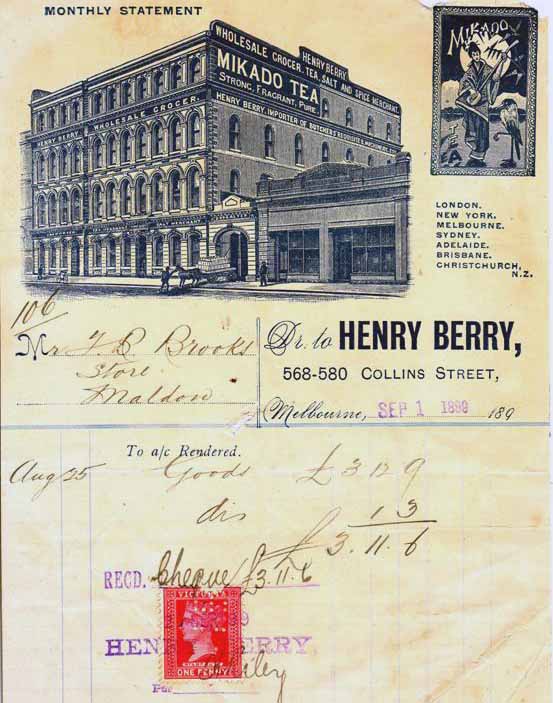 MONTHLY STATEMENT
HENRY BERRY
WHOLESALE GROCER, TEA, SALT AND SPICE MERCHANT
MIKADO TEA
STRONG, FRAGRANT, PURE.
HENRY BERRY, IMPORTER OF BUTCHERS REQUISITES & MACHINERY
HENRY BERRY, WHOLESALE GROCER
MIKADO
TEA
LONDON.
NEW YORK.
MELBOURNE.
SYDNEY.
ADELAIDE.
BRISBANE.
CHRISTCHURCH,
N.Z.
106
Mr Brooks
Store
Maldon
Dr. to HENRY BERRY,
568-580 COLLINS STREET,
Melbourne, SEP 1 1899 189
To a/c Rendered.
Aug 25 Goods £3 12 9
dis 1 3
£3.11.6
RECD. Cheque £3.11.6
VICTORIA
HENRY BERRY
ONE PENNY
Per